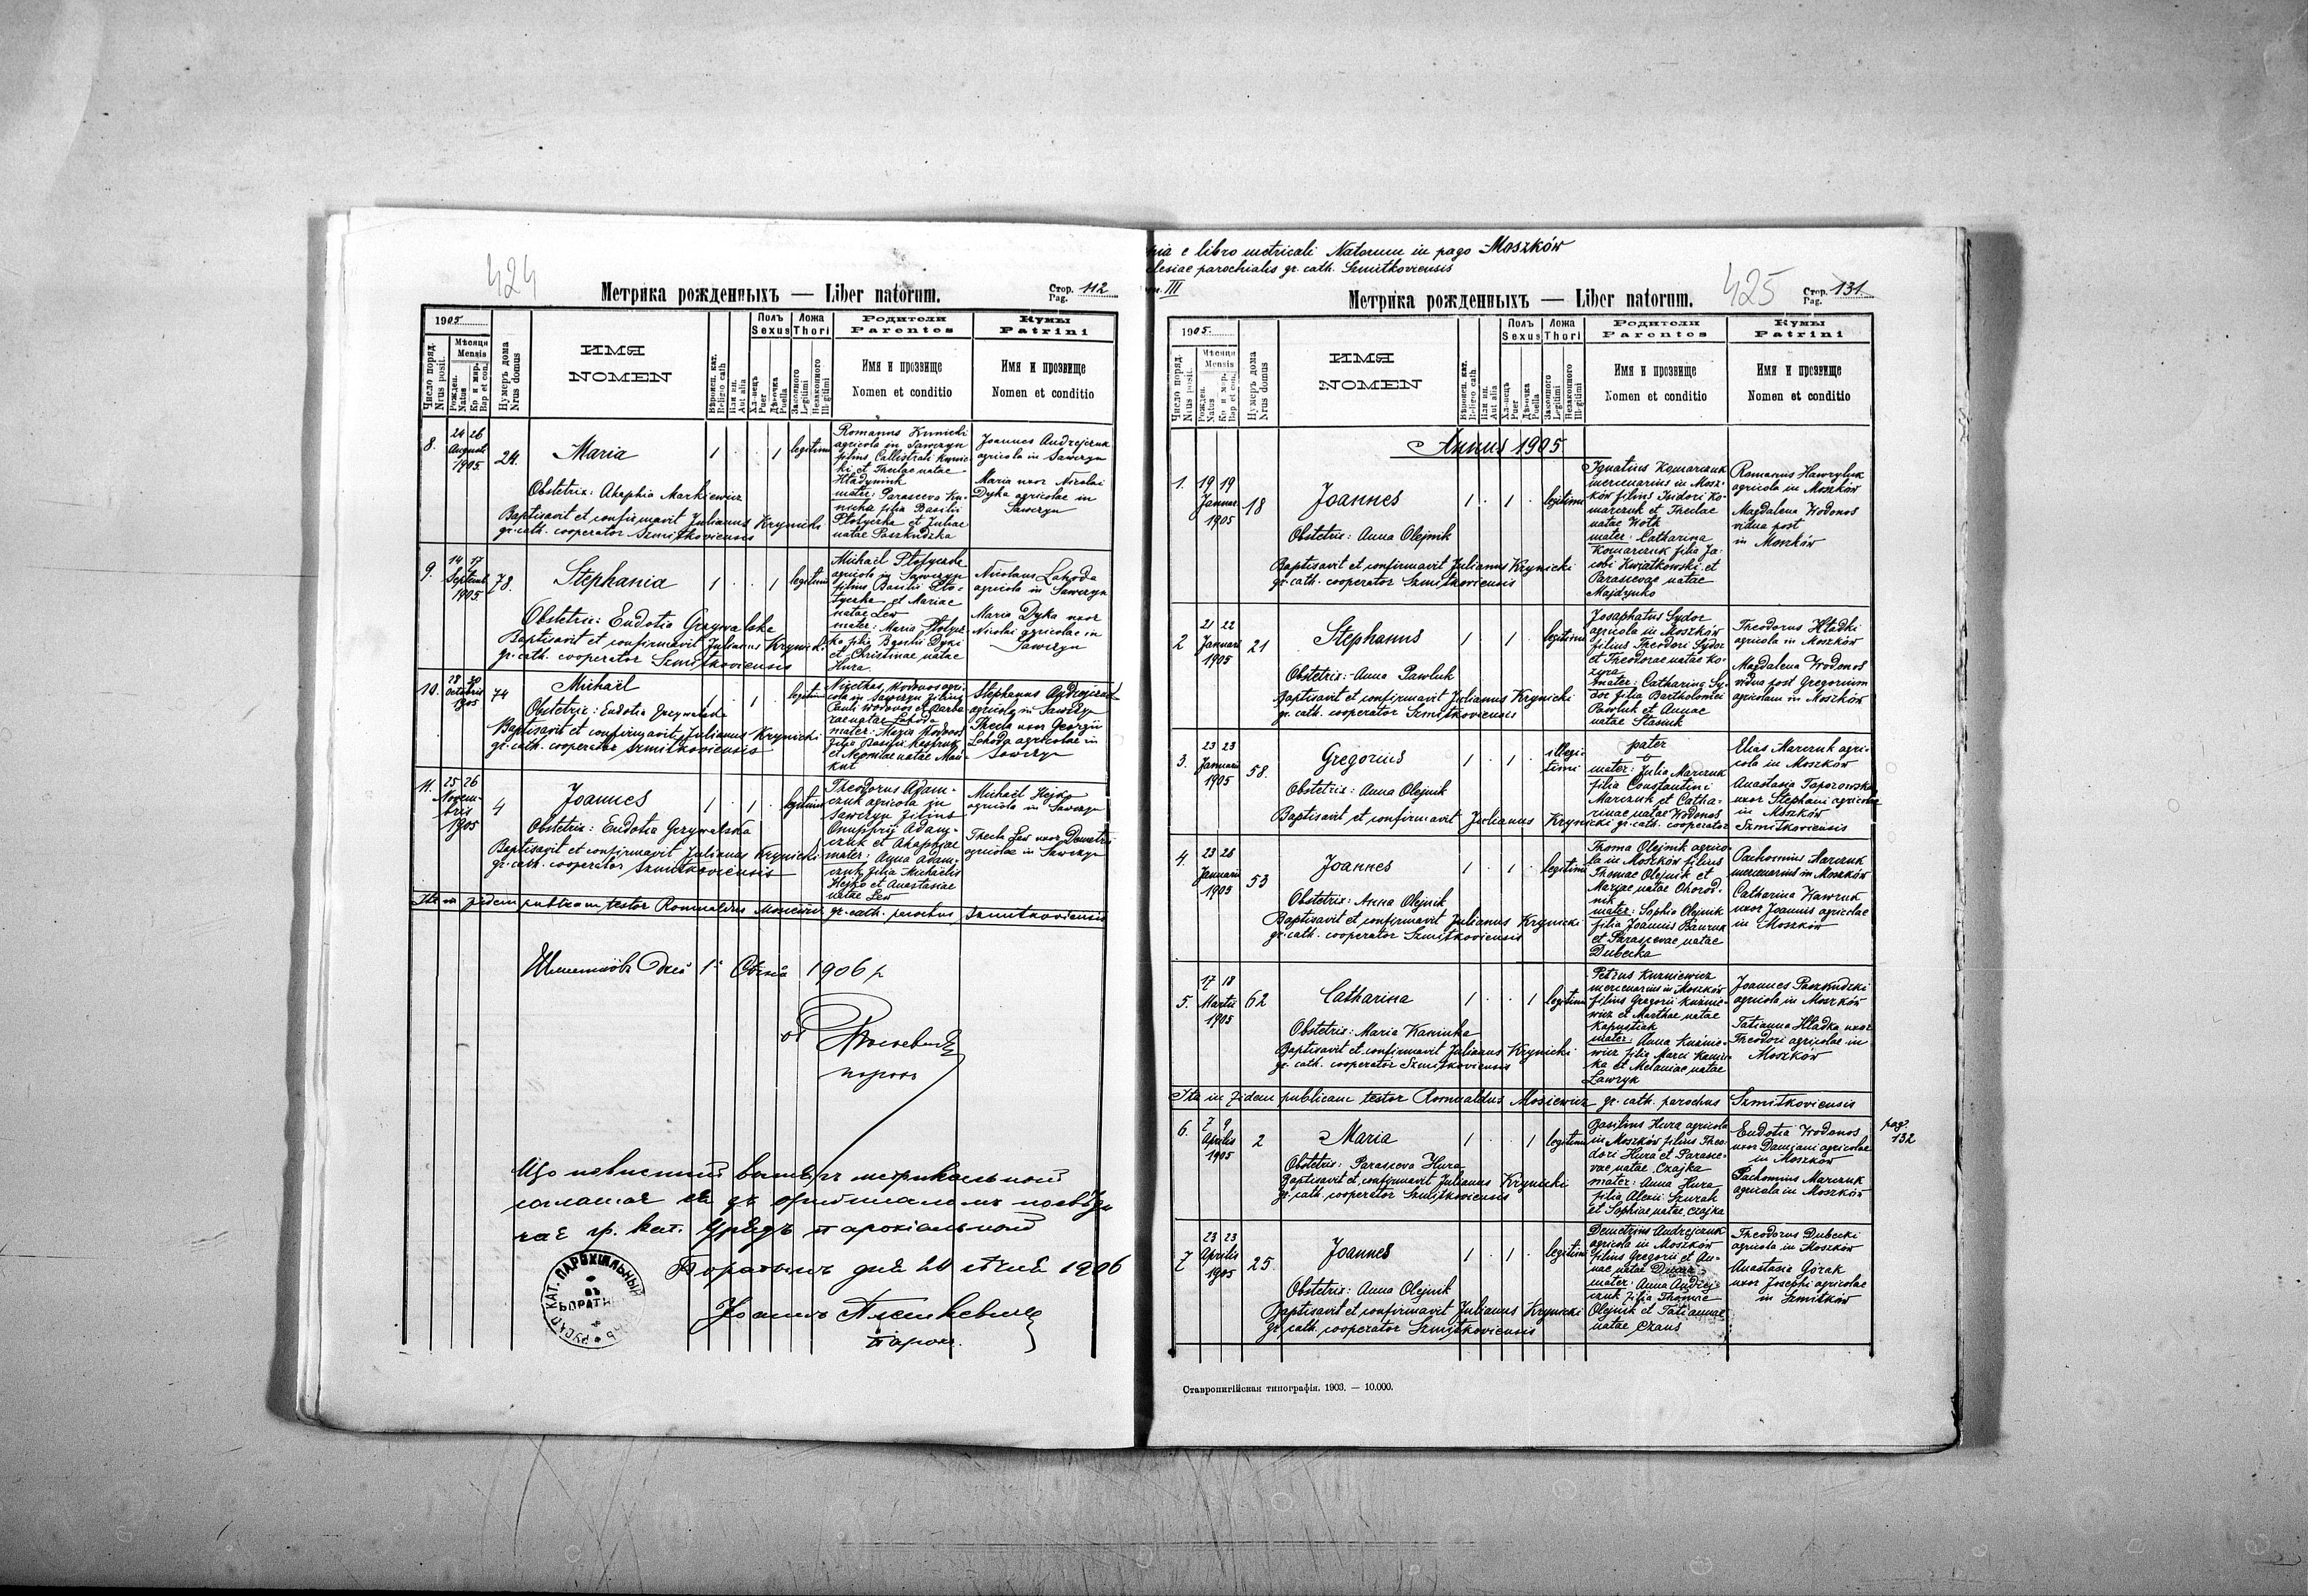 424
Метрика рожденныхъ — Liber natorum.
Стор. Pag. 112
1905
Число поряд. Nrus posit.
Мѣсяця Mensis
Рожден. Natus
Ко и мир. Bap et con.
Нумеръ дома Nrus domus
ИМЯ
NOMEN
Вѣроисп. кат. Religio cath
Или ин. Aut alia
Полъ Sexus
Хл-пецъ Puer
Дѣвочка Puella
Ложа Thori
Законного Legitimi
Незаконного Illegitimi
Родители
Parentes
Имя и прозвище
Nomen et conditio
Кумы
Patrini
Имя и прозвище
Nomen et conditio
8.
24 26
Augusti
1905
24.
Maria
1 · · 1 legitimi
Obstetrix: Ahaphia Markiewicz
Baptisavit et confirmavit Julianus Krynicki
gr. cath. cooperator Szmitkoviensis
Romanus Kunicki
agricola in Sawczyn
filius Callistrati Kunic-
ki et Theclae natae
Hladyniuk
mater: Parasceva Ku-
nicka filia Basilii
Ptolyczka et Juliae
natae Paszkudzka
Joannes Andrejczuk
agricola in Sawczyn
Maria uxor Nicolai
Dyka agricolae in
Sawczyn
9.
14 17
Septemb
1905
78.
Stephania
1 · · 1 legitimi
Obstetrix: Eudotia Grzywalska
Baptisavit et confirmavit Julianus Krynicki
gr. cath. cooperator Szmitkoviensis
Michaël
agricola in Sawczyn
filius Basilii
et Mariae
natae Lew
mater: Maria
ka filia Basilii Dyki
et Christinae natae
Hura
Nicolaus Lahoda
agricola in Sawczyn
Maria Dyka uxor
Nicolai agricolae in
Sawczyn
10.
28 30
Octobris
1905
74
Michaël
1 · 1 · legitimi
Obstetrix: Eudotia Grzywalska
Baptisavit et confirmavit Julianus Krynicki
gr. cath. cooperator Szmitkoviensis
Nicethas Wodonos agri-
cola in Sawczyn filius
Pauli Wodonos et Barba
rae natae Lahoda
mater: Maria Wodonos
filia Basilii
et natae
Stephanus Andrejczuk
agricola in Sawczyn
Thecla uxor Georgii
Lahoda agricolae in
Sawczyn
11.
25 26
Novem-
bris
1905
4
Joannes
1 · 1 · legitimi
Obstetrix: Eudotia Grzywalska
Baptisavit et confirmavit Julianus Krynicki
gr. cath. cooperator Szmitkoviensis
Theodorus Adam-
czuk agricola in
Sawczyn filius
Onuphrii Adam-
czuk et Ahaphiae
mater: Anna Adam-
czuk filia Michaëlis
Hejko et Anastasiae
natae Lew
Michaël Hejko
agricola in Sawczyn
Thecla Lew uxor Demetrii
agricolae in Sawczyn
Ita in fidem publicam testor Romualdus Mosiewicz gr. cath. parochus Szmitkoviensis
дня 1 1906 р
парох
гр. кат. Урядъ парохіальный
дня 20 1906
парох.
КАТ. ПАРОХІАЛЬНЫЙ
въ
425
e libro metricali Natorum in pago Moszków
parochialis gr. cath. Szmitkoviensis
III
Метрика рожденныхъ — Liber natorum.
Стор. Pag. 131
1905
Число поряд. Nrus posit.
Мѣсяця Mensis
Рожден. Natus
Ко и мир. Bap et con.
Нумеръ дома Nrus domus
ИМЯ
NOMEN
Вѣроисп. кат. Religio cath
Или ин. Aut alia
Полъ Sexus
Хл-пецъ Puer
Дѣвочка Puella
Ложа Thori
Законного Legitimi
Незаконного Illegitimi
Родители
Parentes
Имя и прозвище
Nomen et conditio
Кумы
Patrini
Имя и прозвище
Nomen et conditio
Annus 1905
1.
19 19
Januar
1905
18
Joannes
1 · 1 · legitimi
Obstetrix: Anna Olejnik
Baptisavit et confirmavit Julianus Krynicki
gr. cath. cooperator Szmitkoviensis
Ignatius Komarczuk
mercenarius in Mosz-
ków filius Isidori Ko-
marczuk et Theclae
natae Wotk
mater: Catharina
Komarczuk filia Ja-
cobi Kwiatkowski et
Parascevae natae
Majdynko
Romanus Hawryluk
agricola in Moszków
Magdalena Wodonos
vidua post
in Moszków
2
21 22
Januarii
1905
21
Stephanus
1 · 1 · legitimi
Obstetrix: Anna Pawluk
Baptisavit et confirmavit Julianus Krynicki
gr. cath. cooperator Szmitkoviensis
Josaphatus Sydor
agricola in Moszków
filius Theodori Sydor
et Theodorae natae Ko-
zyra
mater: Catharina Sy-
dor filia Bartholomei
Pawluk et Annae
natae Stasiuk
Theodorus Hladki
agricola in Moszków
Magdalena Wodonos
vidua post Gregorium
agricolam in Moszków
3.
23 23
Januarii
1905
58.
Gregorius
1 · 1 · illegi-
timi
Obstetrix: Anna Olejnik
Baptisavit et confirmavit Julianus Krynicki gr. cath. cooperator Szmitkoviensis
pater
mater: Julia Marczuk
filia Constantini
Marczuk et Catha-
rinae natae Wodonos
Elias Marczuk agri-
cola in Moszków
Anastasia Taporowska
uxor Stephani agricolae
in Moszków
4.
23 28
Januarii
1905
53
Joannes
1 · 1 · legitimi
Obstetrix: Anna Olejnik
Baptisavit et confirmavit Julianus Krynicki
gr. cath. cooperator Szmitkoviensis
Thoma Olejnik agrico-
la in Moszków filius
Thomae Olejnik et
Mariae natae Ohorod-
nik
mater: Sophia Olejnik
filia Joannis Banruk
et Parascevae natae
Dubecka
Pachomius Marczuk
mercenarius in Moszków
Catharina Hawruk
uxor Joannis agricolae
in Moszków
5.
17 18
Martii
1905
62
Catharina
1 · · 1 legitimi
Obstetrix: Maria Kaminka
Baptisavit et confirmavit Julianus Krynicki
gr. cath. cooperator Szmitkoviensis
Petrus Kuzniewicz
mercenarius in Moszków
filius Gregorii Kuznie-
wicz et Marthae natae
Kapustiak
mater: Anna Kuznie-
wicz filia Marci Kamin-
ka et Melaniae natae
Ławryk
Joannes Paszkudzki
agricola in Moszków
Tatianna Hladka uxor
Theodori agricolae in
Moszków
Ita in fidem publicam testor Romualdus Mosiewicz gr. cath. parochus Szmitkoviensis
6.
7 9
Aprilis
1905
2
Maria
1 · · 1 legitimi
Obstetrix: Parasceva Hura
Baptisavit et confirmavit Julianus Krynicki
gr. cath. cooperator Szmitkoviensis
Basilius Hura agricola
in Moszków filius Theo-
dori Hura et Parasce-
vae natae Czajka
mater: Anna Hura
filia Alexii Szurak
et Sophiae natae Czajka
Eudotia Wodonos
uxor Damiani agricolae
in Moszków
Pachomius Marczuk
agricola in Moszków
pag.
132
7
23 23
Aprilis
1905
25.
Joannes
1 · 1 · legitimi
Obstetrix: Anna Olejnik
Baptisavit et confirmavit Julianus Krynicki
gr. cath. cooperator Szmitkoviensis
Demetrius Andrejczuk
agricola in Moszków
filius Gregorii et An-
nae natae
mater: Anna Andrej-
czuk filia Thomae
Olejnik et Tatiannae
natae Czaus
Theodorus Dubecki
agricola in Moszków
Anastasia Górak
uxor Josephi agricolae
in Szmitków
Ставропигійская типографія. 1903. — 10.000.